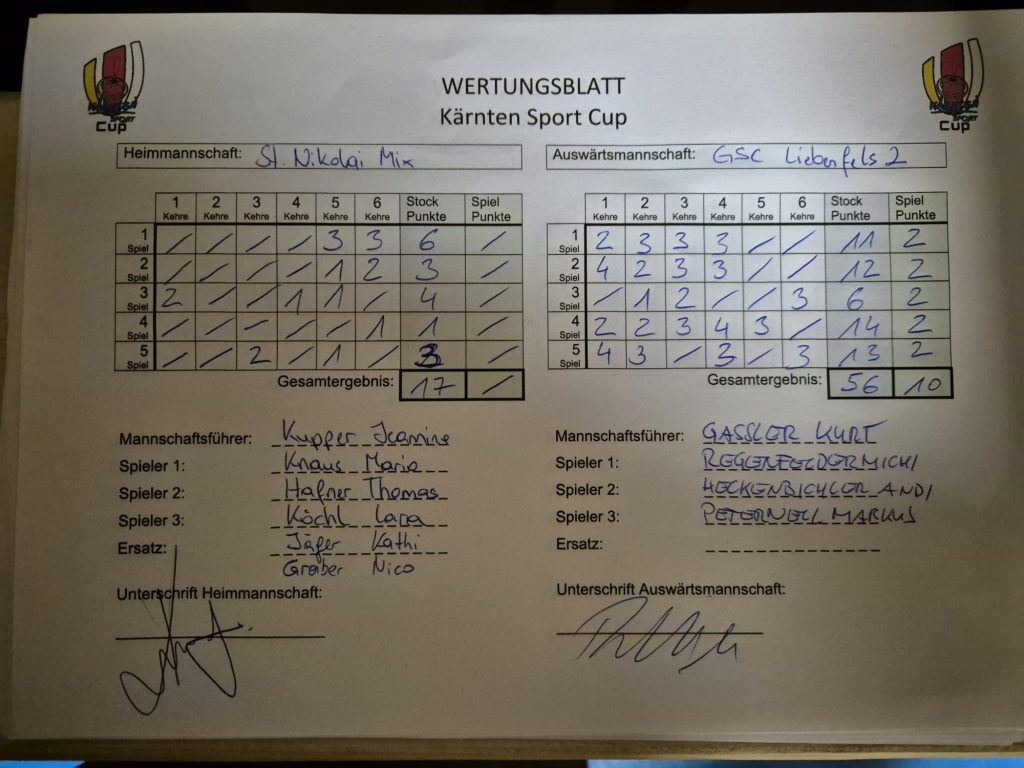 WERTUNGSBLATT
Kärnten Sport Cup
SPORT
Cup
SPORT
Cup
Heimmannschaft: St. Nikolai Mix
Auswärtsmannschaft: GSC Liebenfels 2
1 2 3 4 5 6 Stock Spiel
Kehre Kehre Kehre Kehre Kehre Kehre Punkte Punkte
1 Spiel / / / / 3 3 6 /
2 Spiel / / / / 1 2 3 /
3 Spiel 2 / / 1 1 / 4 /
4 Spiel / / - / / 1 1 /
5 Spiel / / 2 / 1 / 3 /
Gesamtergebnis: 17 /
1 2 3 4 5 6 Stock Spiel
Kehre Kehre Kehre Kehre Kehre Kehre Punkte Punkte
1 Spiel 2 3 3 3 / / 11 2
2 Spiel 4 2 3 3 / / 12 2
3 Spiel / 1 2 / / 3 6 2
4 Spiel 2 2 3 4 3 / 14 2
5 Spiel 4 3 / 3 / 3 13 2
Gesamtergebnis: 56 10
Mannschaftsführer: Kupper Jeannine
Spieler 1: Knaus Mario
Spieler 2: Hafner Thomas
Spieler 3: Köchl Lara
Ersatz: Jäger Kathi
Greiber Nico
Unterschrift Heimmannschaft:
Mannschaftsführer: GASSLER KURT
Spieler 1: REGENFELDER MICHI
Spieler 2: HECKENBICHLER ANDI
Spieler 3: PETERNELL MARKUS
Ersatz:
Unterschrift Auswärtsmannschaft: